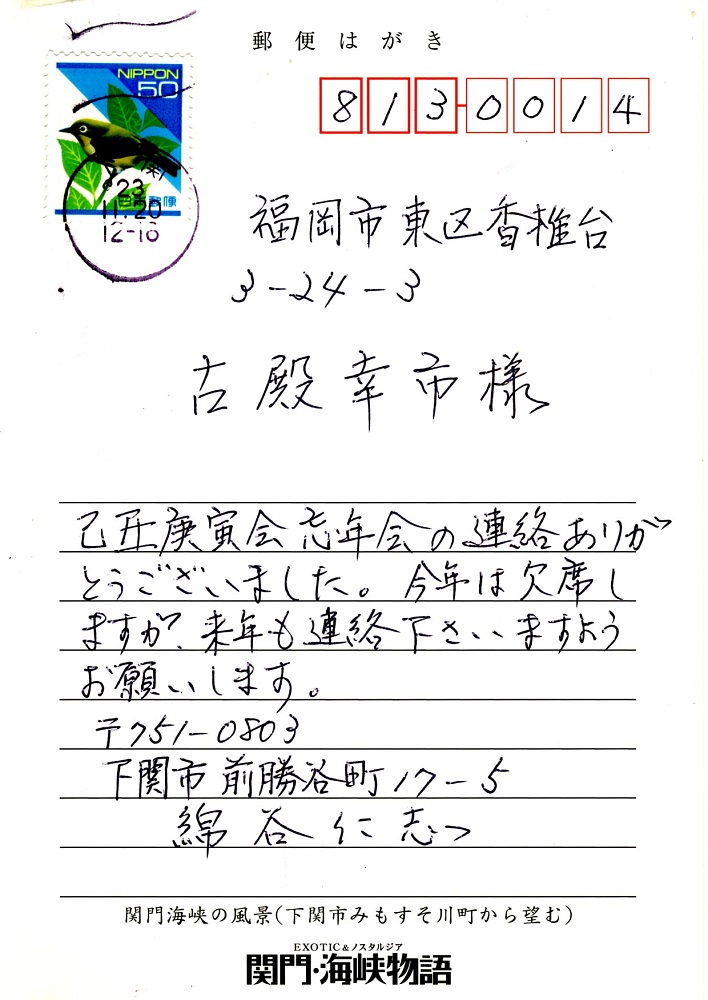 郵便はがき
NIPPON
50
日本郵便
関
23
11.20
12-18
813-0014
福岡市東区香椎台
3-24-3
古殿幸市様
己丑庚寅会忘年会の連絡ありが
とうございました。今年は欠席し
ますが、来年も連絡下さいますよう
お願いします。
〒751-0803
下関市前勝谷町17-5
綿谷仁志
関門海峡の風景(下関市みもすそ川町から望む)
EXOTIC&ノスタルジア
関門・海峡物語